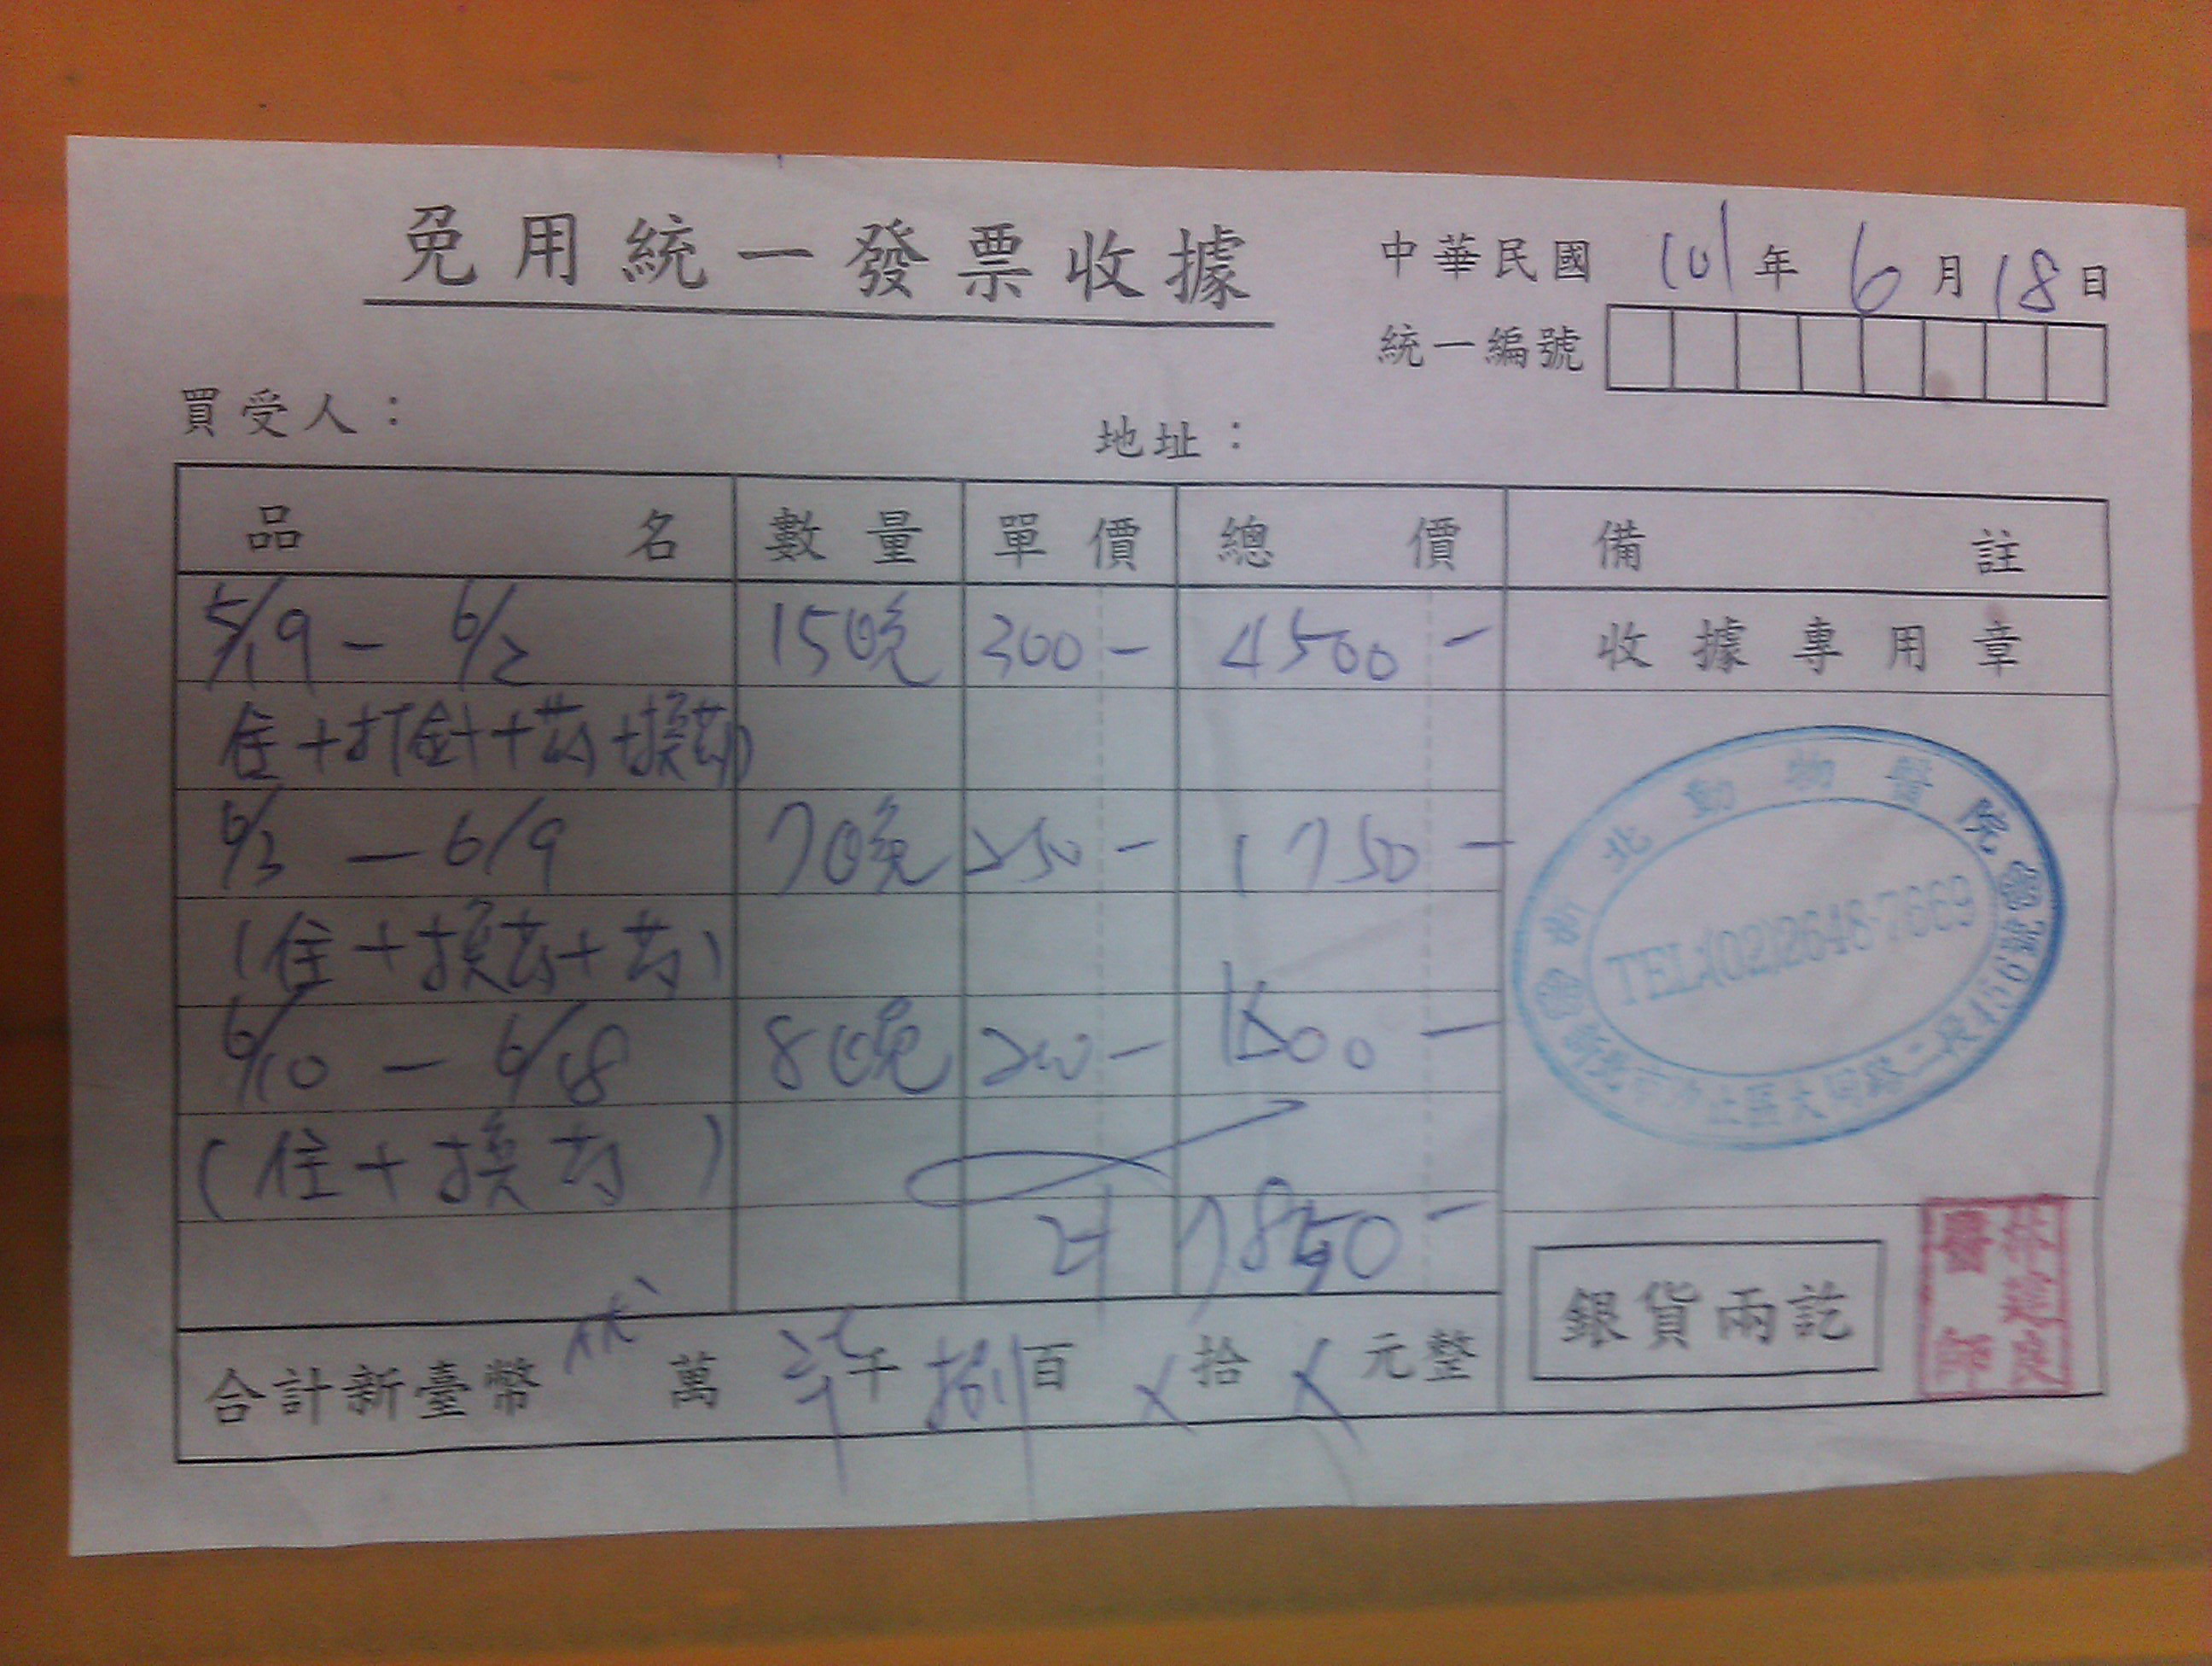 免用統一發票收據
中華民國 101 年 6 月 18 日
統一編號
買受人：
地址：
品名 數量 單價 總價 備註
5/19 - 6/2 15晚 300- 4500-
收據專用章
住+打針+葯+換葯
6/3 - 6/9 7晚 250- 1750-
(住+換葯+葯)
6/10 - 6/18 8晚 200- 1600-
(住+換葯)
計 7850-
合計新臺幣 萬 柒千 捌百 拾 元整
新北動物醫院
TEL:(02)2648-7669
新北市汐止區大同路二段456號
銀貨兩訖
林建良
醫師